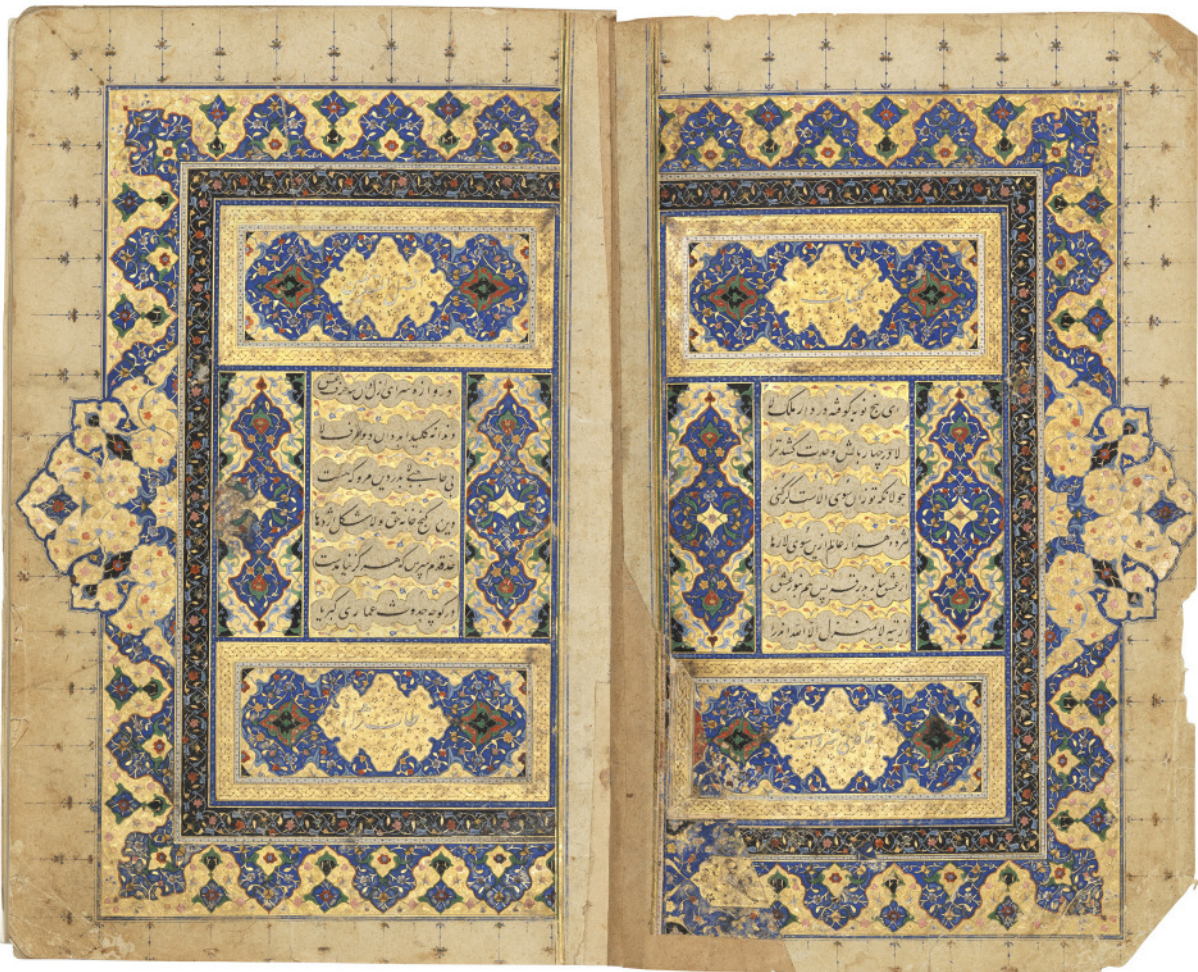 کلیات
ای پنج نوبه کوفته در دار ملک لا
لا در چهار بالش وحدت کشد ترا
جولانگه تو زان سوی الاست گر کنی
هژده هزار عالم ازین سوی لا رها
از عشق ساز بدرقه پس هم بنور عشق
از تیه لا بمنزل الا الله اندرا
خاقانی شروانی
دروازه سرای ازل دان سه حرف عشق
دندانه کلید ابد دان دو حرف لا
بی حاجبی لا بدر دین مرو که هست
دین گنج خانه حق و لا شکل اژدها
حد قدم مپرس که هرگز نیامدست
در کوچه حدوث عماری کبریا
طاب ثراه